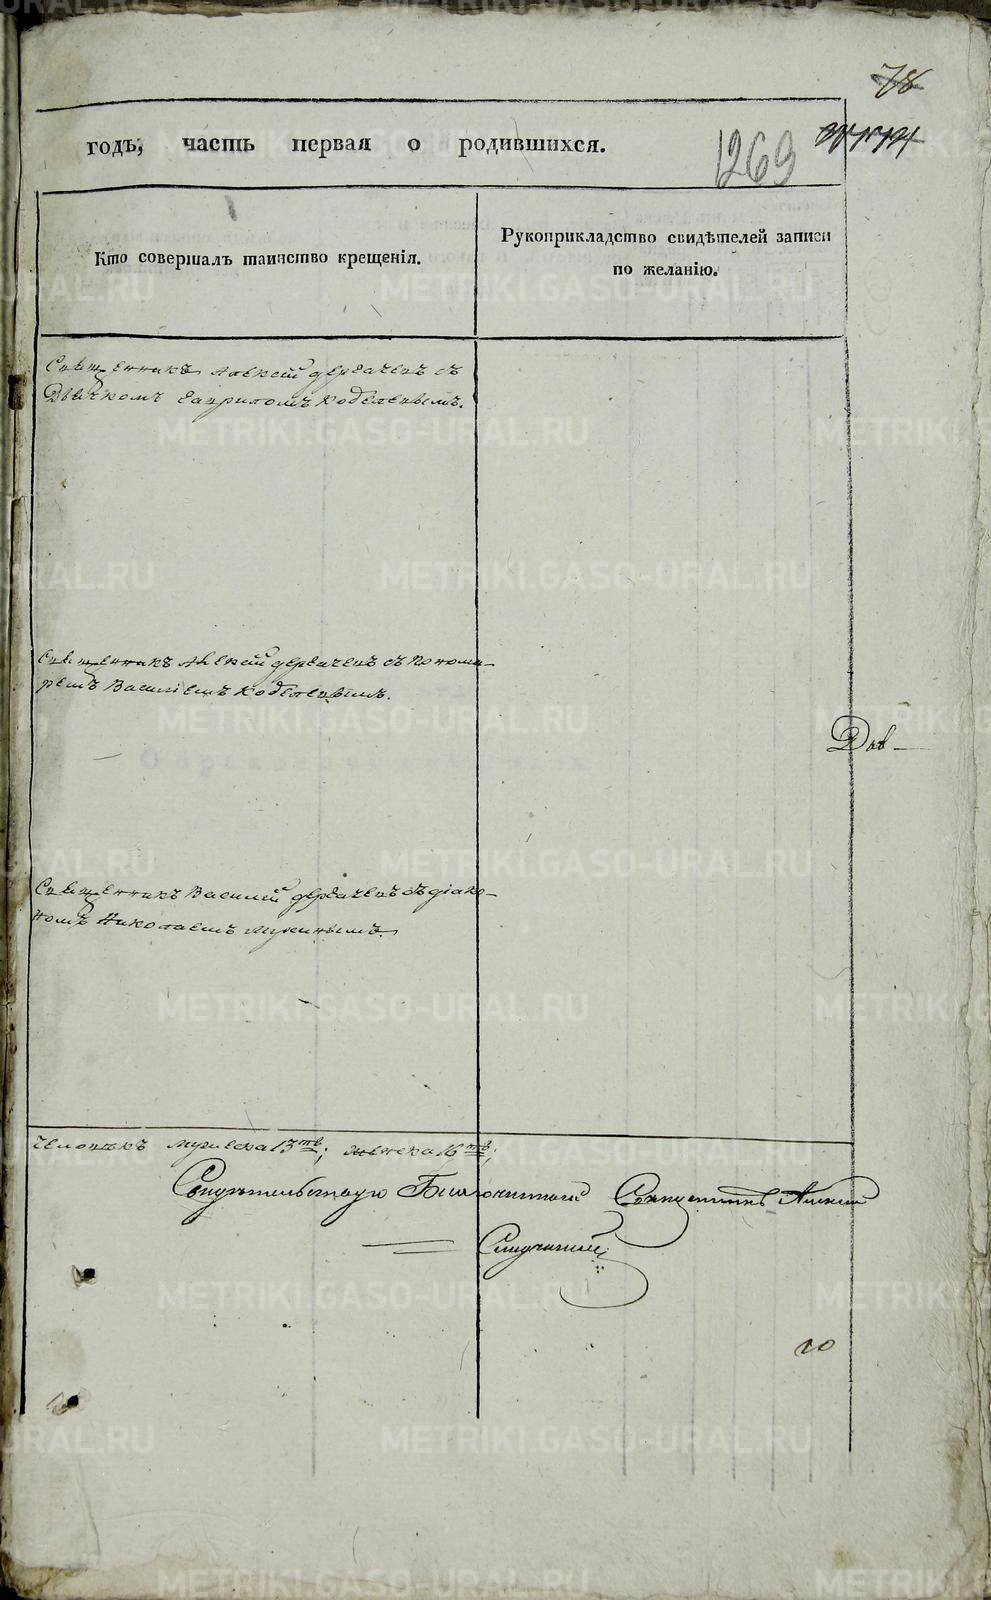 78
годъ, часть первая о родившихся.
1269
Кто совершалъ таинство крещенія.
Рукоприкладство свидѣтелей записи
по желанію.
Священникъ Алексій Дерябинъ съ
Дьячкомъ Гавриломъ
Священникъ Алексій Дерябинъ съ понома-
ремъ Василіемъ
Священникъ Василій Дерябинъ съ діако-
номъ Николаемъ
человѣкъ мужеска 13тв; женска 16тв;
Свидѣтельствую Благочинный Священникъ Алексій
METRIKI.GASO-URAL.RU